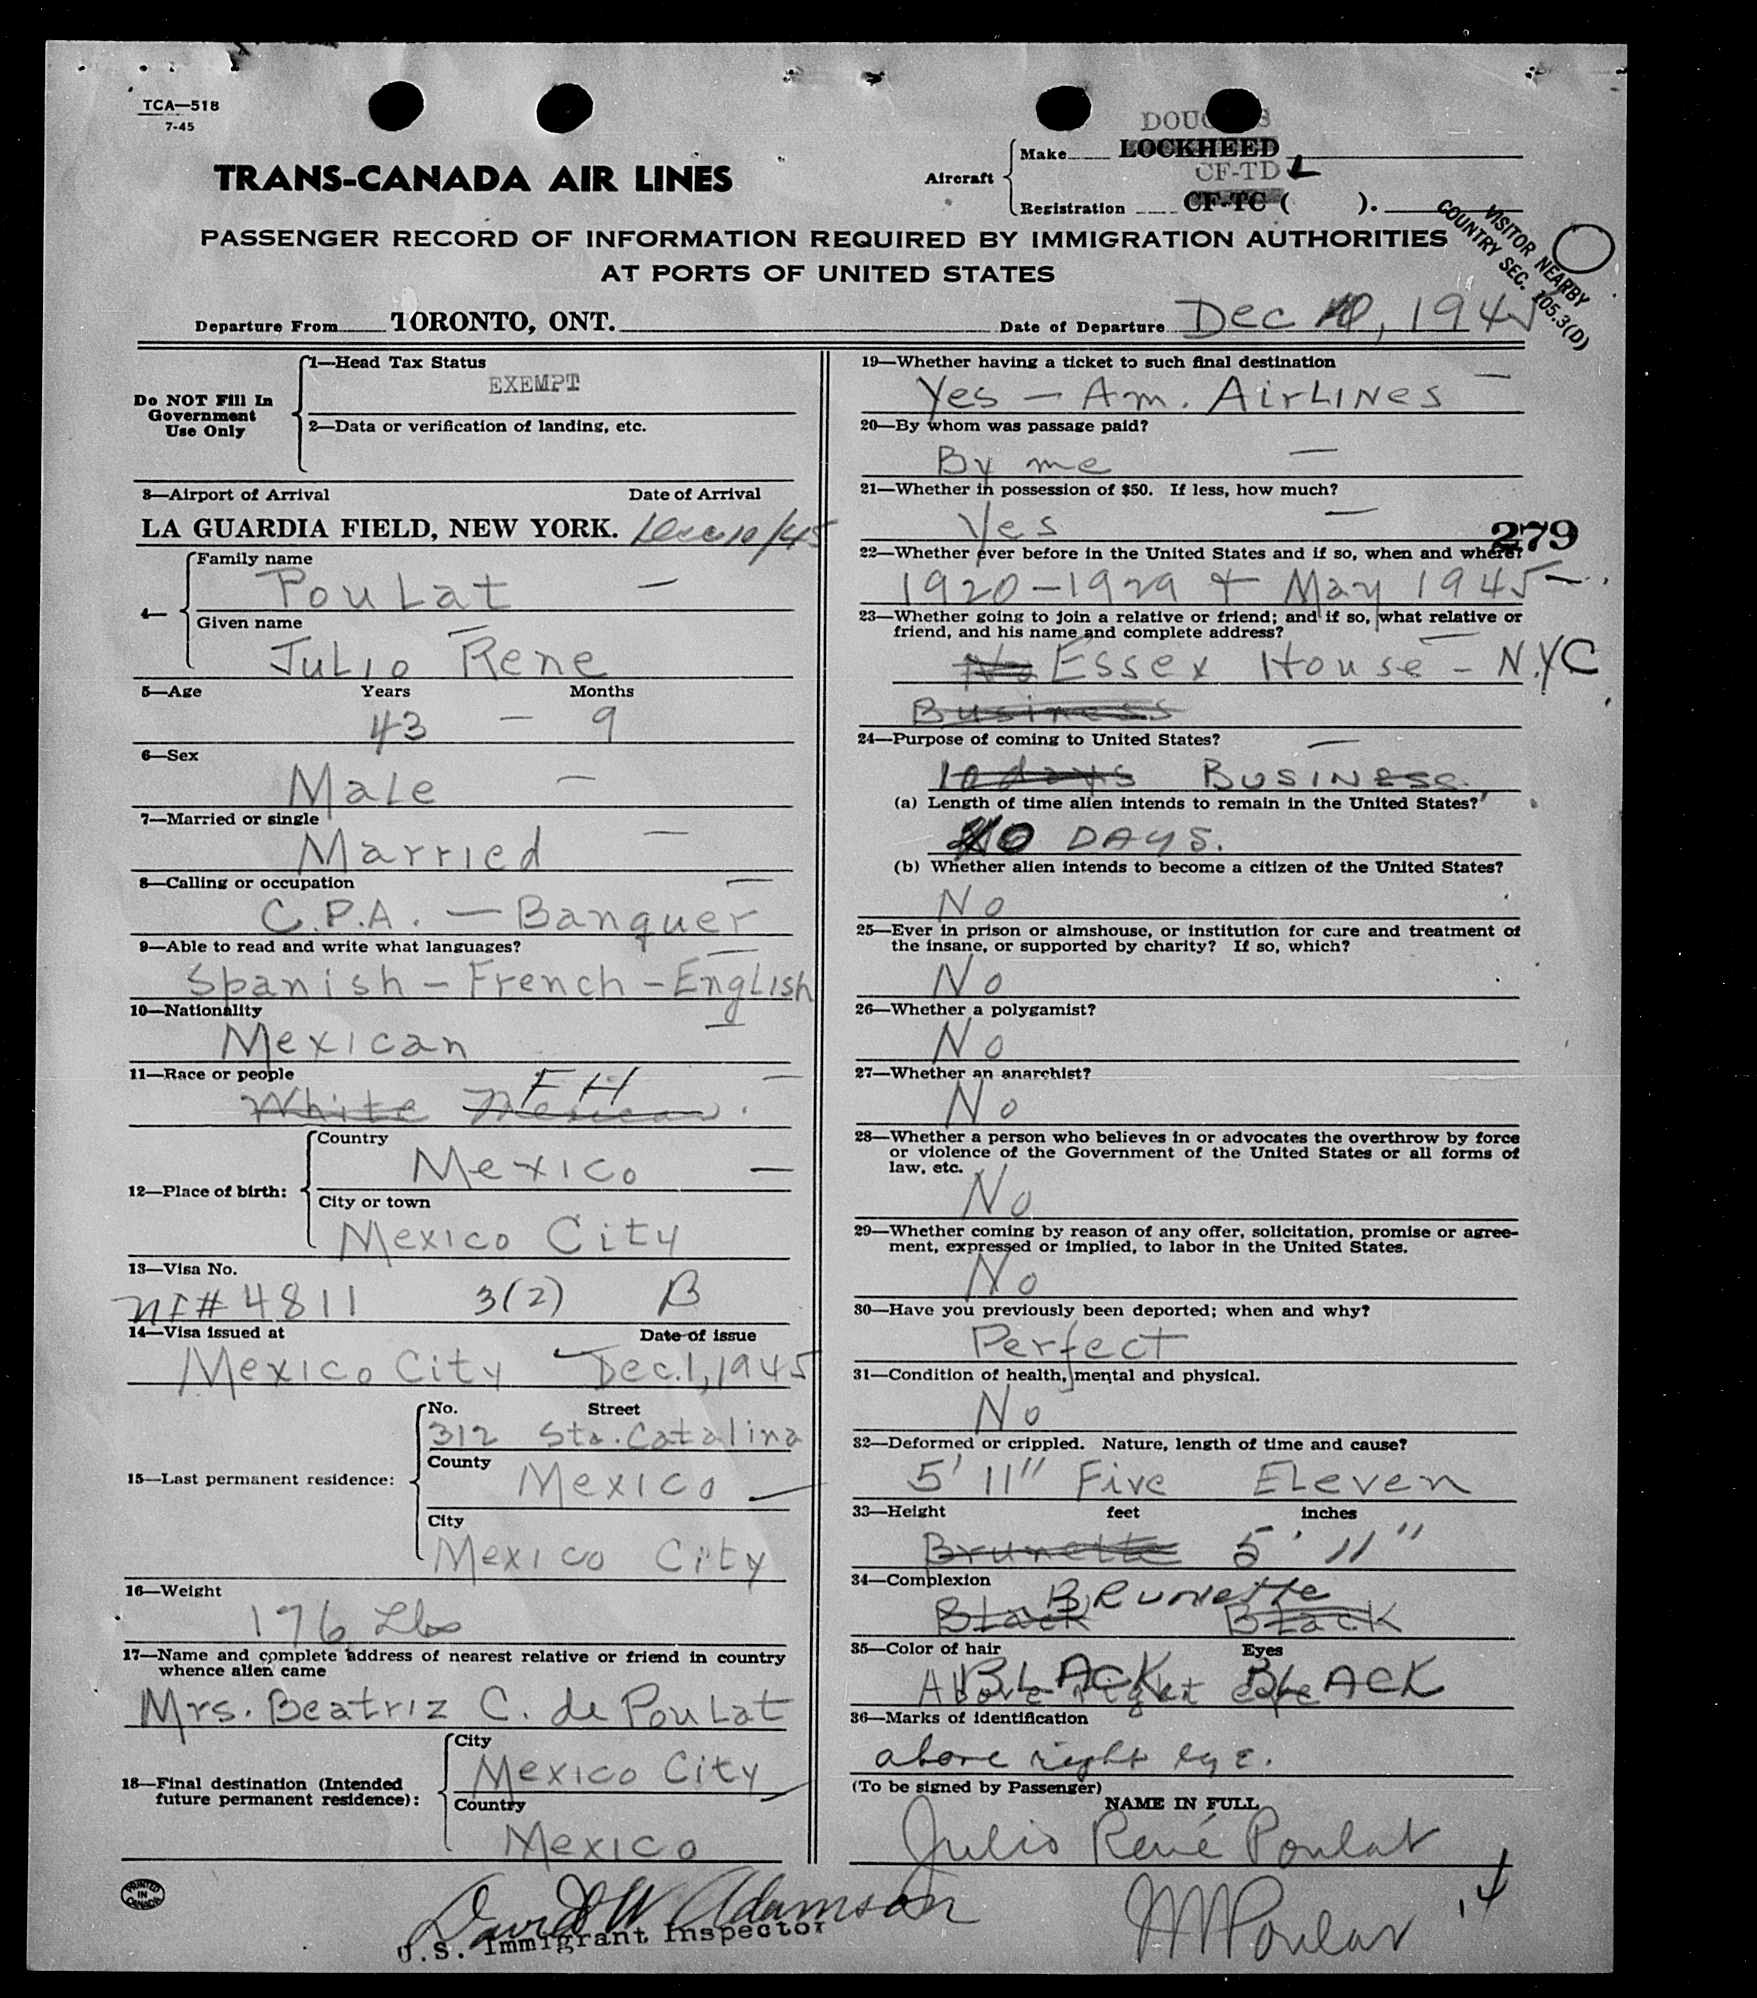 TCA—518
7-45
DOUGLAS
Make LOCKHEED
TRANS-CANADA AIR LINES
Aircraft
CF-TD L
Registration CF-TC ( ).
VISITOR NEARBY
COUNTRY SEC. 105.3(D)
PASSENGER RECORD OF INFORMATION REQUIRED BY IMMIGRATION AUTHORITIES
AT PORTS OF UNITED STATES
Departure From TORONTO, ONT. Date of Departure Dec 10, 1945
Do NOT Fill In
Government
Use Only
1—Head Tax Status
EXEMPT
2—Data or verification of landing, etc.
3—Airport of Arrival Date of Arrival
LA GUARDIA FIELD, NEW YORK. Dec 10/45
4—
Family name
Poulat —
Given name
Julio Rene
5—Age Years Months
43 — 9
6—Sex
Male —
7—Married or single
Married —
8—Calling or occupation
C.P.A. — Banquer
9—Able to read and write what languages?
Spanish – French – English
10—Nationality
Mexican
11—Race or people
White Mexican. FH
12—Place of birth:
Country
Mexico —
City or town
Mexico City
13—Visa No.
NI# 4811 3(2) B
14—Visa issued at Date of issue
Mexico City Dec. 1, 1945
15—Last permanent residence:
No. Street
312 Sta. Catalina
County
Mexico
City
Mexico City
16—Weight
176 Lbs
17—Name and complete address of nearest relative or friend in country
whence alien came
Mrs. Beatriz C. de Poulat
18—Final destination (Intended
future permanent residence):
City
Mexico City
Country
Mexico
PRINTED
IN
CANADA
19—Whether having a ticket to such final destination
Yes — Am. Airlines —
20—By whom was passage paid?
By me —
21—Whether in possession of $50. If less, how much?
Yes —
279
22—Whether ever before in the United States and if so, when and where?
1920–1929 + May 1945 —
23—Whether going to join a relative or friend; and if so, what relative or
friend, and his name and complete address?
No Essex House – N.Y.C
Business
24—Purpose of coming to United States?
10 days BUSINESS.
(a) Length of time alien intends to remain in the United States?
10 DAYS.
(b) Whether alien intends to become a citizen of the United States?
No
25—Ever in prison or almshouse, or institution for care and treatment of
the insane, or supported by charity? If so, which?
No
26—Whether a polygamist?
No
27—Whether an anarchist?
No
28—Whether a person who believes in or advocates the overthrow by force
or violence of the Government of the United States or all forms of
law, etc.
No
29—Whether coming by reason of any offer, solicitation, promise or agree-
ment, expressed or implied, to labor in the United States.
No
30—Have you previously been deported; when and why?
Perfect
31—Condition of health, mental and physical.
No
32—Deformed or crippled. Nature, length of time and cause?
5' 11" Five Eleven
33—Height feet inches
Brunette 5' 11"
34—Complexion
Brunette
Black Black
35—Color of hair Eyes
BLACK BLACK
Above right eye
36—Marks of identification
above right eye.
(To be signed by Passenger)
NAME IN FULL
Julio René Poulat
David W Adamson
U.S. Immigrant Inspector